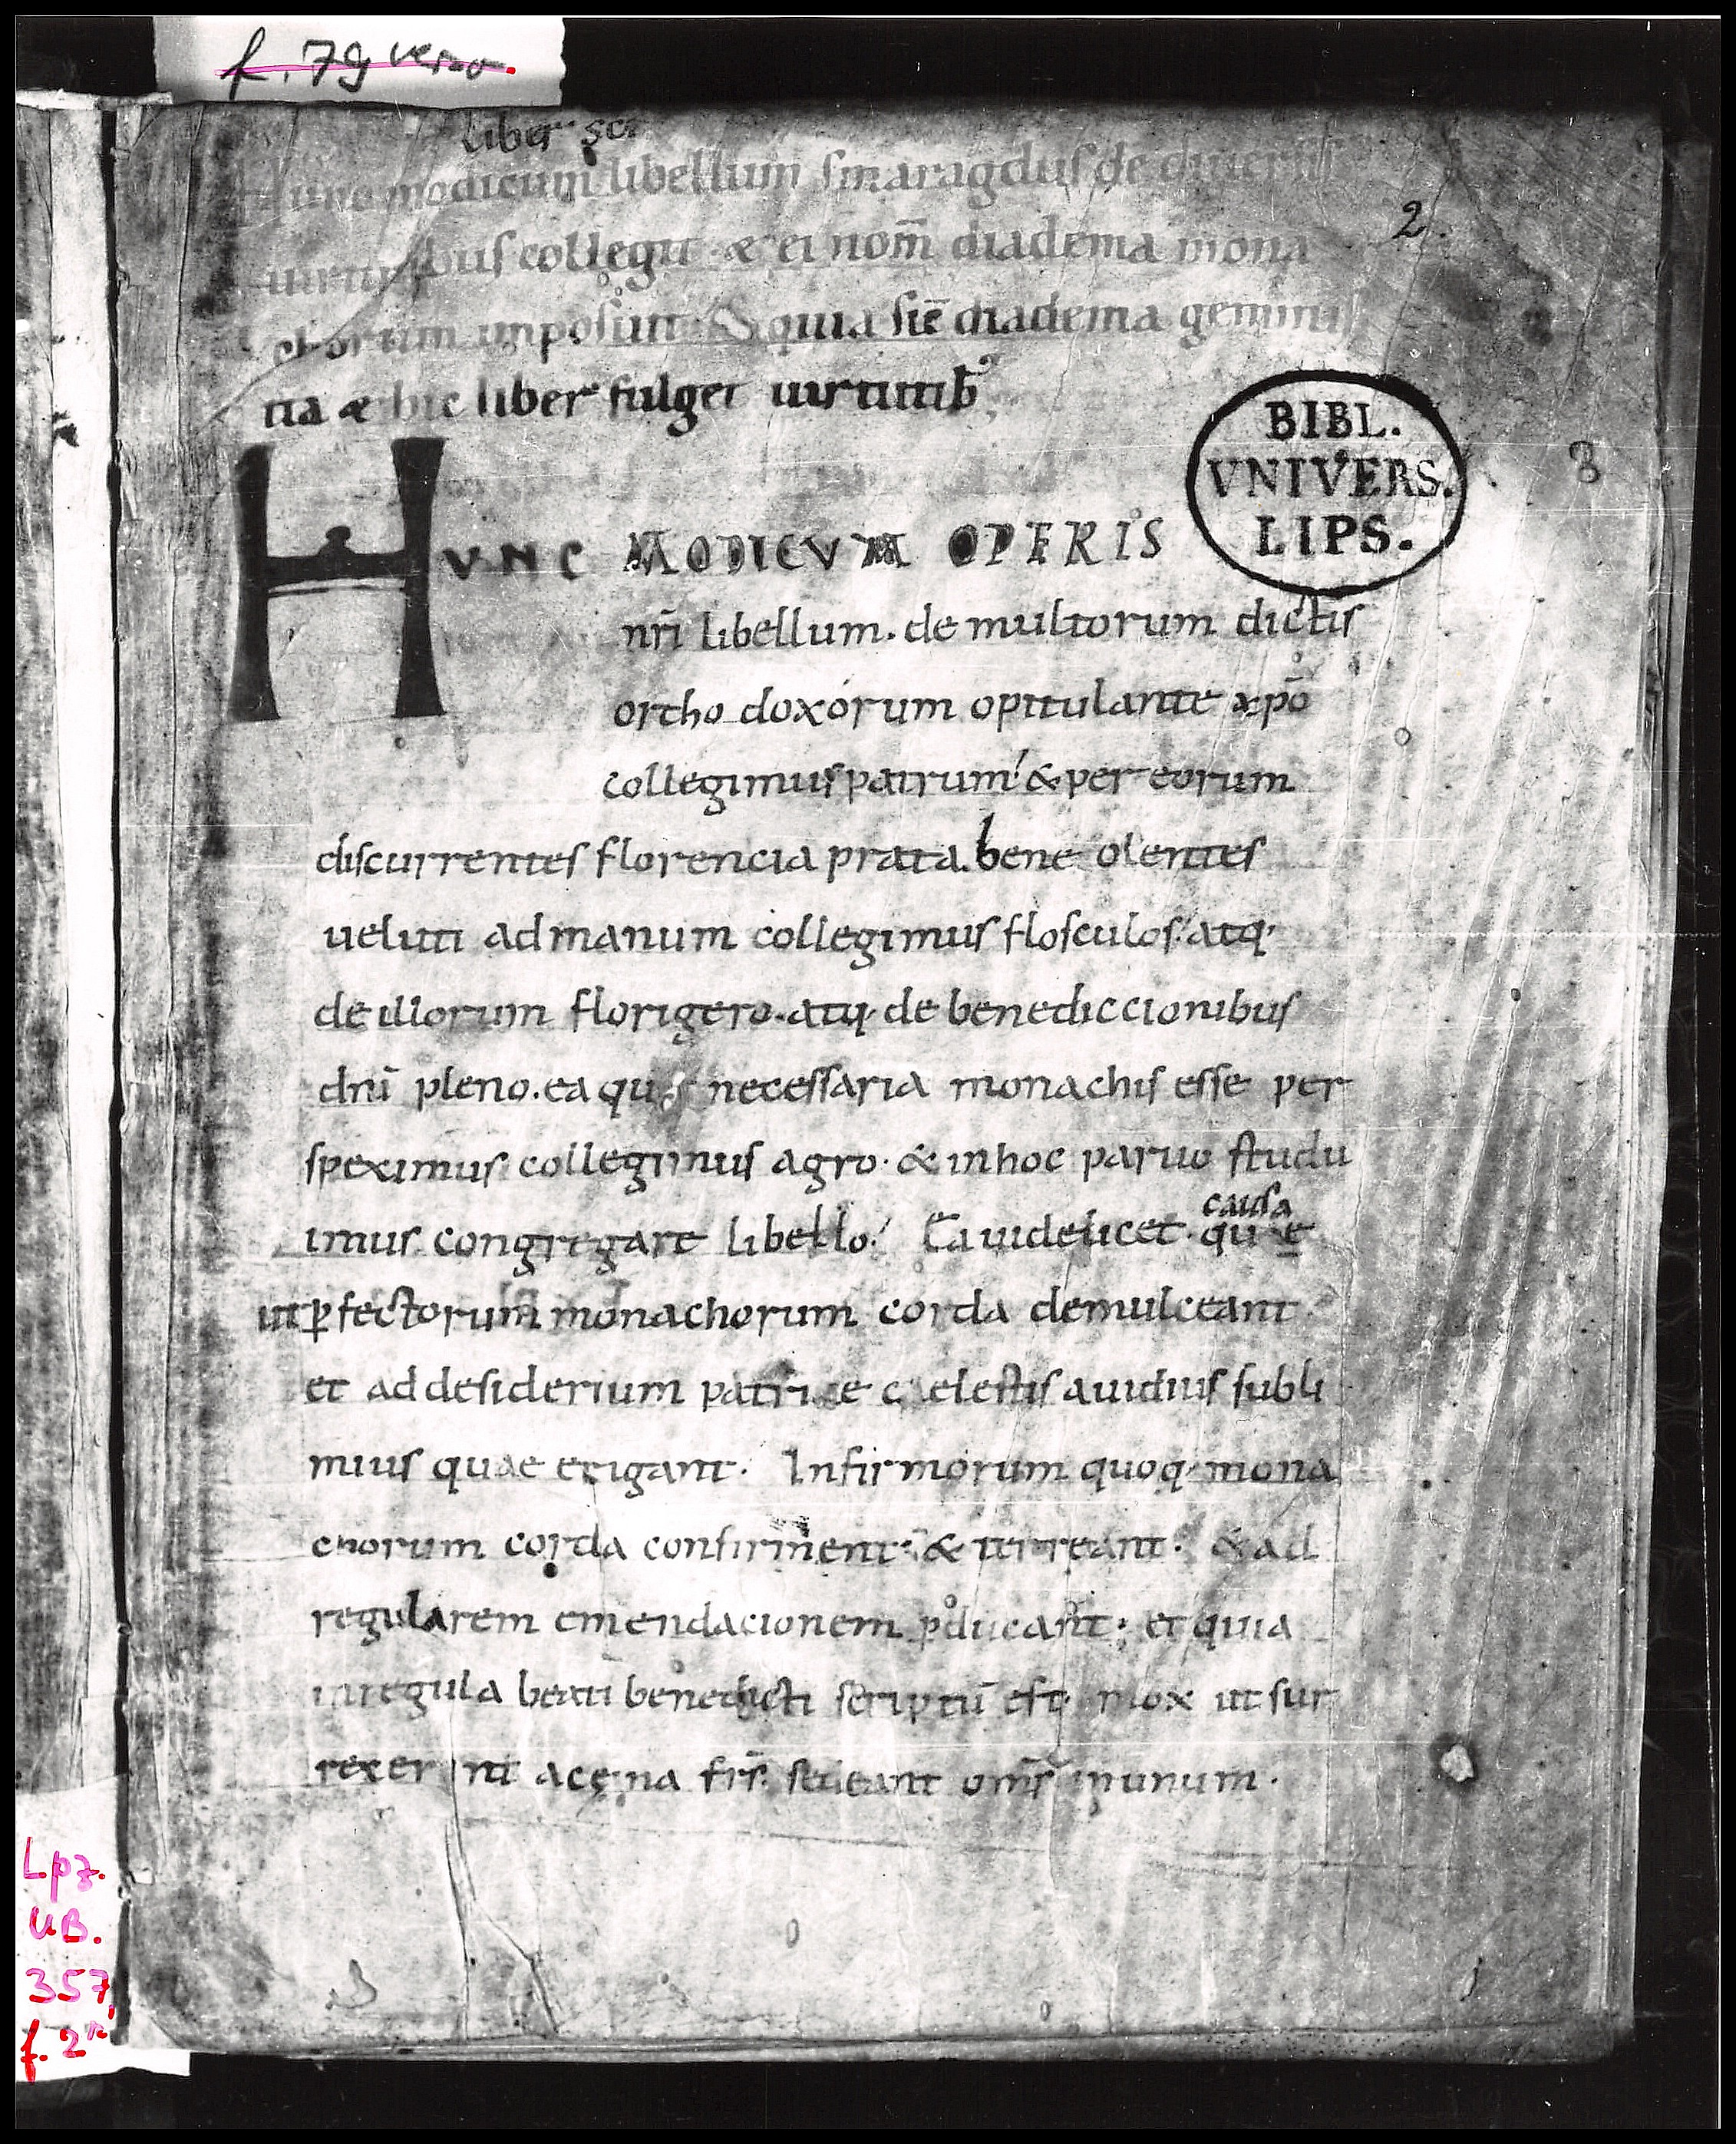 f. 79 verso.
liber scī
Hunc modicum libellum smaragdus de diuersis
uirtutibus collegit & ei nom̄ diadema mona
chorum imposuit quia sic̄ diadema gemmis
ita & hic liber fulget uirtutib;
2.
BIBL.
VNIVERS.
LIPS.
8
HVNC MODICVM OPERIS
nr̄i libellum. de multorum dictis
ortho doxorum opitulante xp̄o
collegimus patrum & per eorum
discurrentes florencia prata. bene olentes
ueluti ad manum collegimus flosculos. atq;
de illorum florigero. atq; de benediccionibus
dn̄i pleno. ea que necessaria monachis esse per
speximus collegimus agro. & in hoc paruo studu
imus congregare libello. Ea uidelicet. causa que
ut ꝑfectorum monachorum corda demulceant
et ad desiderium patriae caelestis auidius subli
mius quae erigant. Infirmorum quoq; mona
chorum corda confirment & terreant. & ad
regularem emendacionem ꝓducant; et quia
in regula beati benedicti scriptū est mox ut sur
rexerint a cęna fr̄s. sedeant om̄s in unum.
Lpz.
UB.
357,
f. 2r